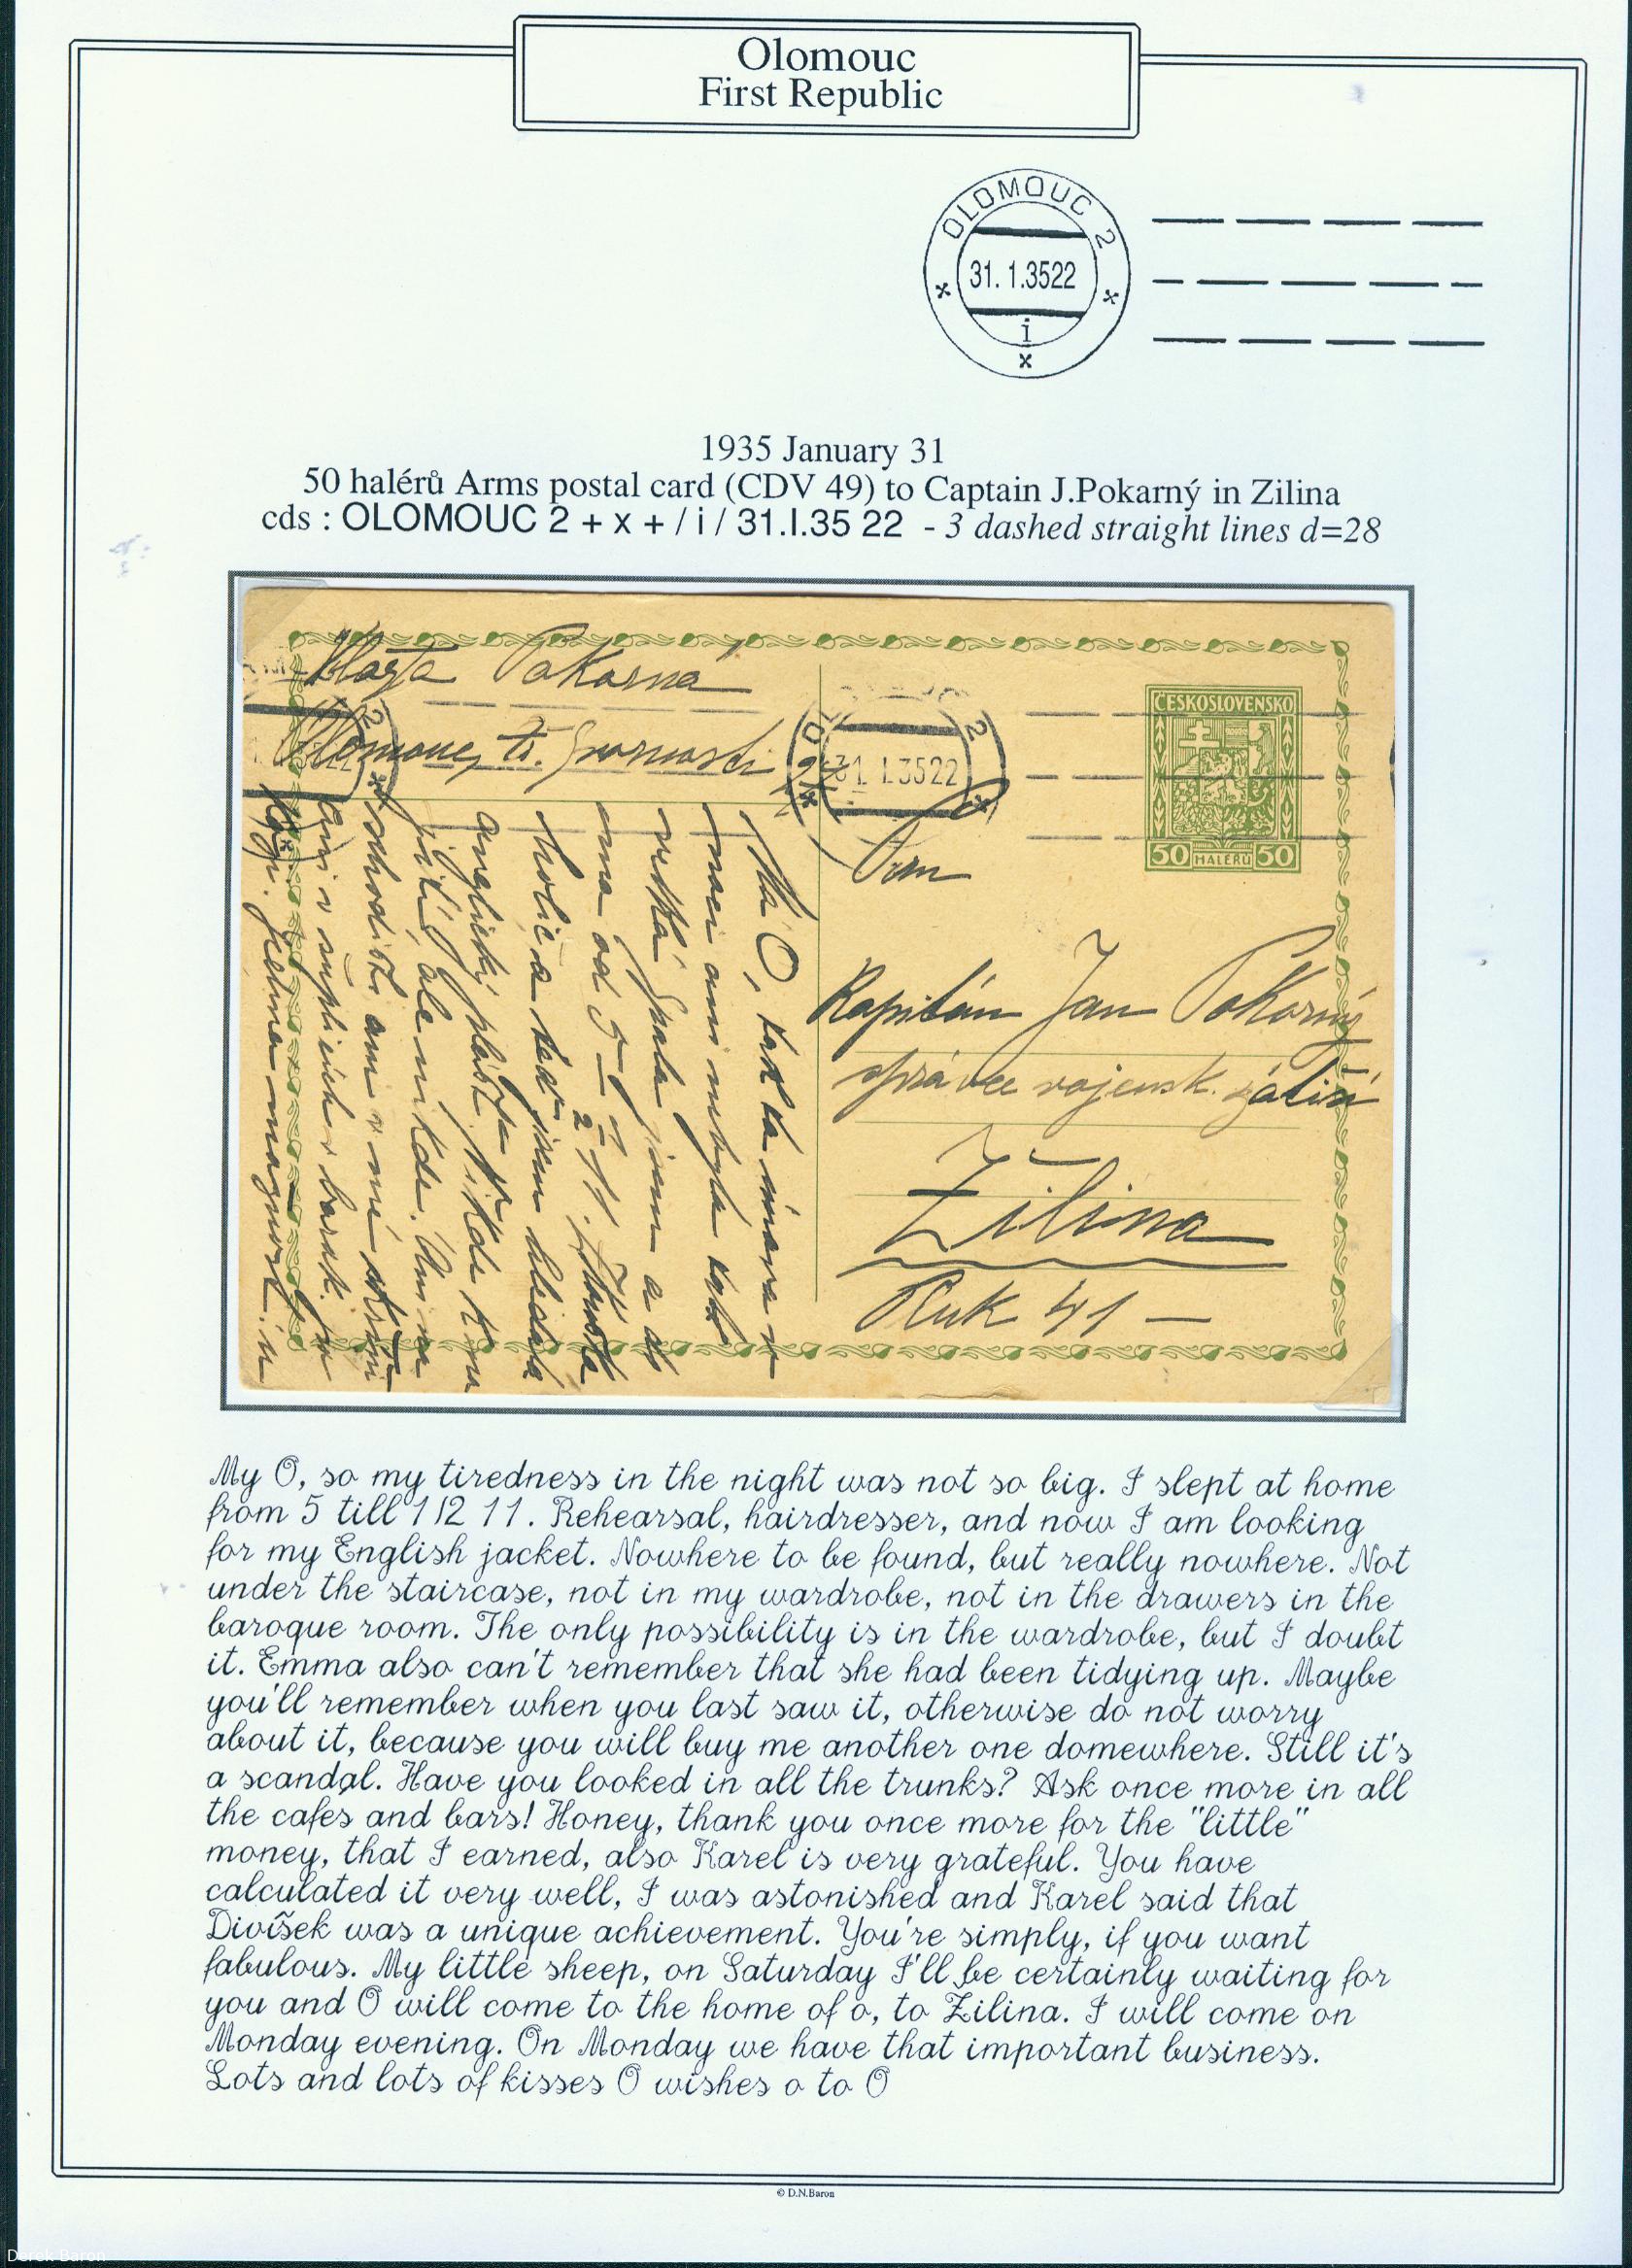 Olomouc
First Republic
OLOMOUC 2
31. 1.3522
i
x
1935 January 31
50 halérů Arms postal card (CDV 49) to Captain J.Pokarný in Zilina
cds : OLOMOUC 2 + x + / i / 31.I.35 22 - 3 dashed straight lines d=28
Pokorná
Olomouc, tř.
2
31 1.3522
ČESKOSLOVENSKO
50 HALÉŘŮ 50
Pan
Kapitán Jan Pokorný
správce vojensk. zátiší
Žilina
Pluk 41 —
Má O, tak ta únava v
noci ani nebyla tak
velká. Spala jsem a do
ma od 5 – 1/2 11.
holič a teď jsem hledala
anglický Nikde
není, ale nikde. Ani na
schodišti ani v mé
ani v
My O, so my tiredness in the night was not so big. I slept at home
from 5 till 1/2 11. Rehearsal, hairdresser, and now I am looking
for my English jacket. Nowhere to be found, but really nowhere. Not
under the staircase, not in my wardrobe, not in the drawers in the
baroque room. The only possibility is in the wardrobe, but I doubt
it. Emma also can't remember that she had been tidying up. Maybe
you'll remember when you last saw it, otherwise do not worry
about it, because you will buy me another one domewhere. Still it's
a scandal. Have you looked in all the trunks? Ask once more in all
the cafés and bars! Honey, thank you once more for the "little"
money, that I earned, also Karel is very grateful. You have
calculated it very well, I was astonished and Karel said that
Divíšek was a unique achievement. You're simply, if you want
fabulous. My little sheep, on Saturday I'll be certainly waiting for
you and O will come to the home of o, to Zilina. I will come on
Monday evening. On Monday we have that important business.
Lots and lots of kisses O wishes o to O
© D.N.Baron
Derek Baron